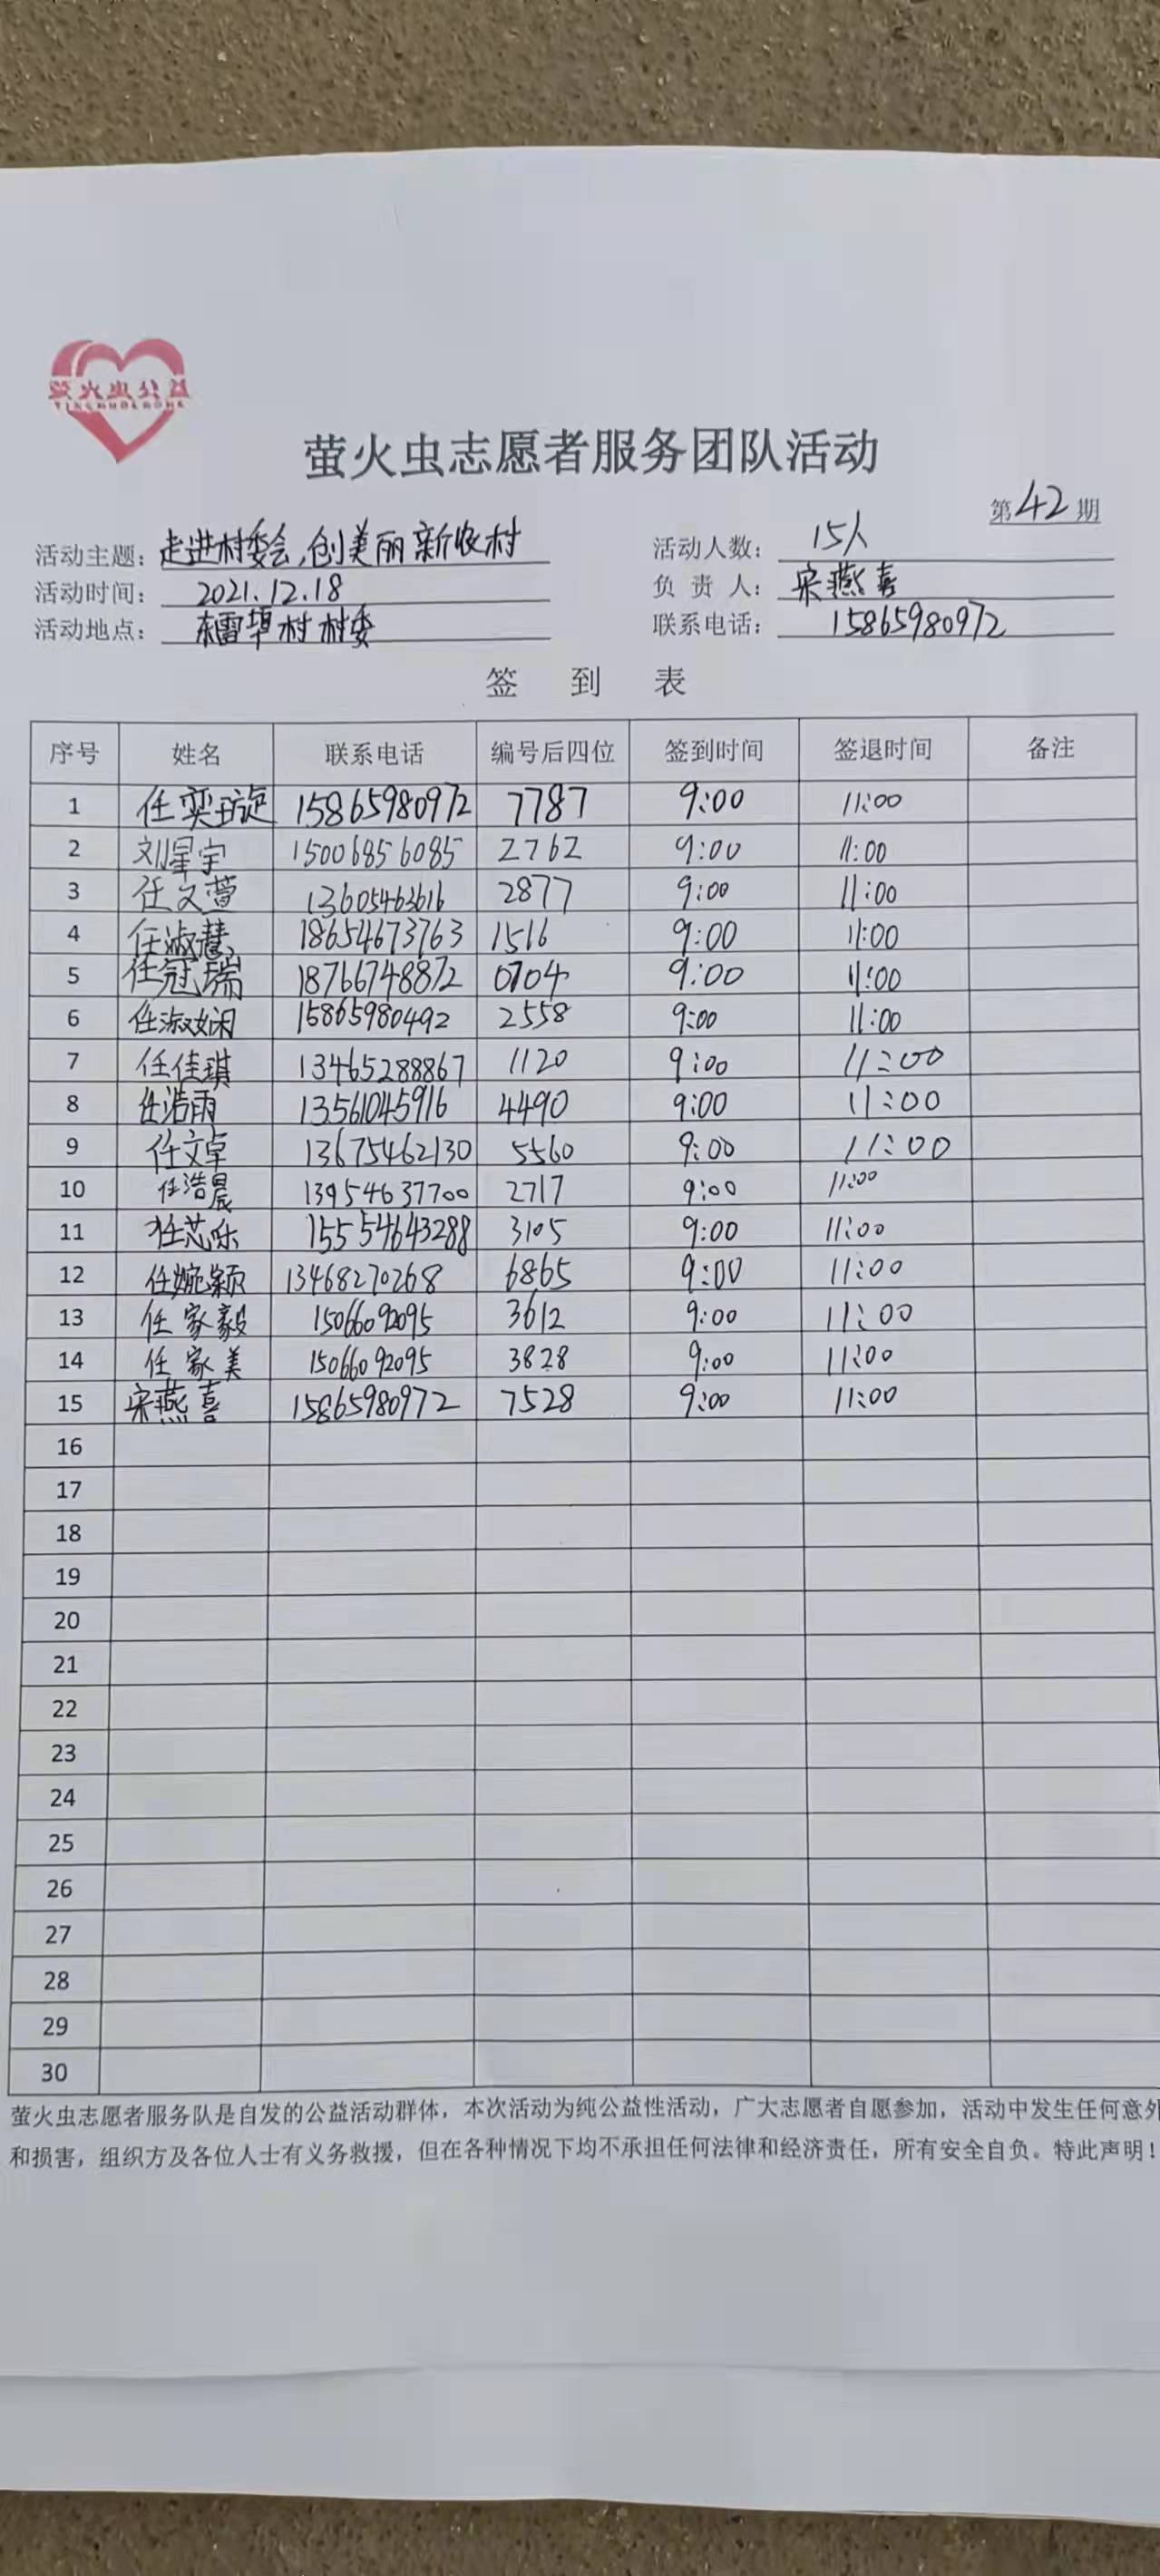 萤火虫公益
YINGHUOCHONG
萤火虫志愿者服务团队活动
第42期
活动主题：走进村委会,创美丽新农村 活动人数：15人
活动时间：2021.12.18 负责人：宋燕喜
活动地点：东雷埠村村委 联系电话：15865980972
签到表
序号 姓名 联系电话 编号后四位 签到时间 签退时间 备注
1 任奕璇 15865980972 7787 9:00 11:00
2 刘星宇 15006856085 2762 9:00 11:00
3 任文萱 13605463616 2877 9:00 11:00
4 任淑慧 18654673763 1516 9:00 11:00
5 任冠瑞 18766748872 0704 9:00 11:00
6 任淑娴 15865980492 2558 9:00 11:00
7 任佳琪 13465288867 1120 9:00 11:00
8 任浩雨 13561045916 4490 9:00 11:00
9 任文卓 13675462130 5560 9:00 11:00
10 任浩晨 13954637700 2717 9:00 11:00
11 任芯乐 15554643288 3105 9:00 11:00
12 任婉颖 13468270268 6865 9:00 11:00
13 任家毅 15066092095 3612 9:00 11:00
14 任家美 15066092095 3828 9:00 11:00
15 宋燕喜 15865980972 7528 9:00 11:00
16
17
18
19
20
21
22
23
24
25
26
27
28
29
30
萤火虫志愿者服务队是自发的公益活动群体，本次活动为纯公益性活动，广大志愿者自愿参加，活动中发生任何意外
和损害，组织方及各位人士有义务救援，但在各种情况下均不承担任何法律和经济责任，所有安全自负。特此声明！